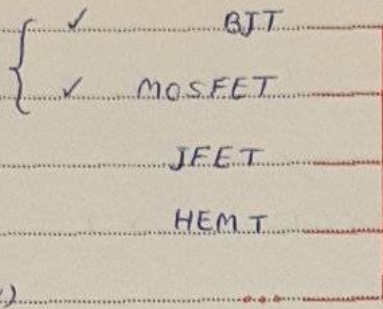 ✓ BJT
✓ MOSFET
JFET
HEMT
...